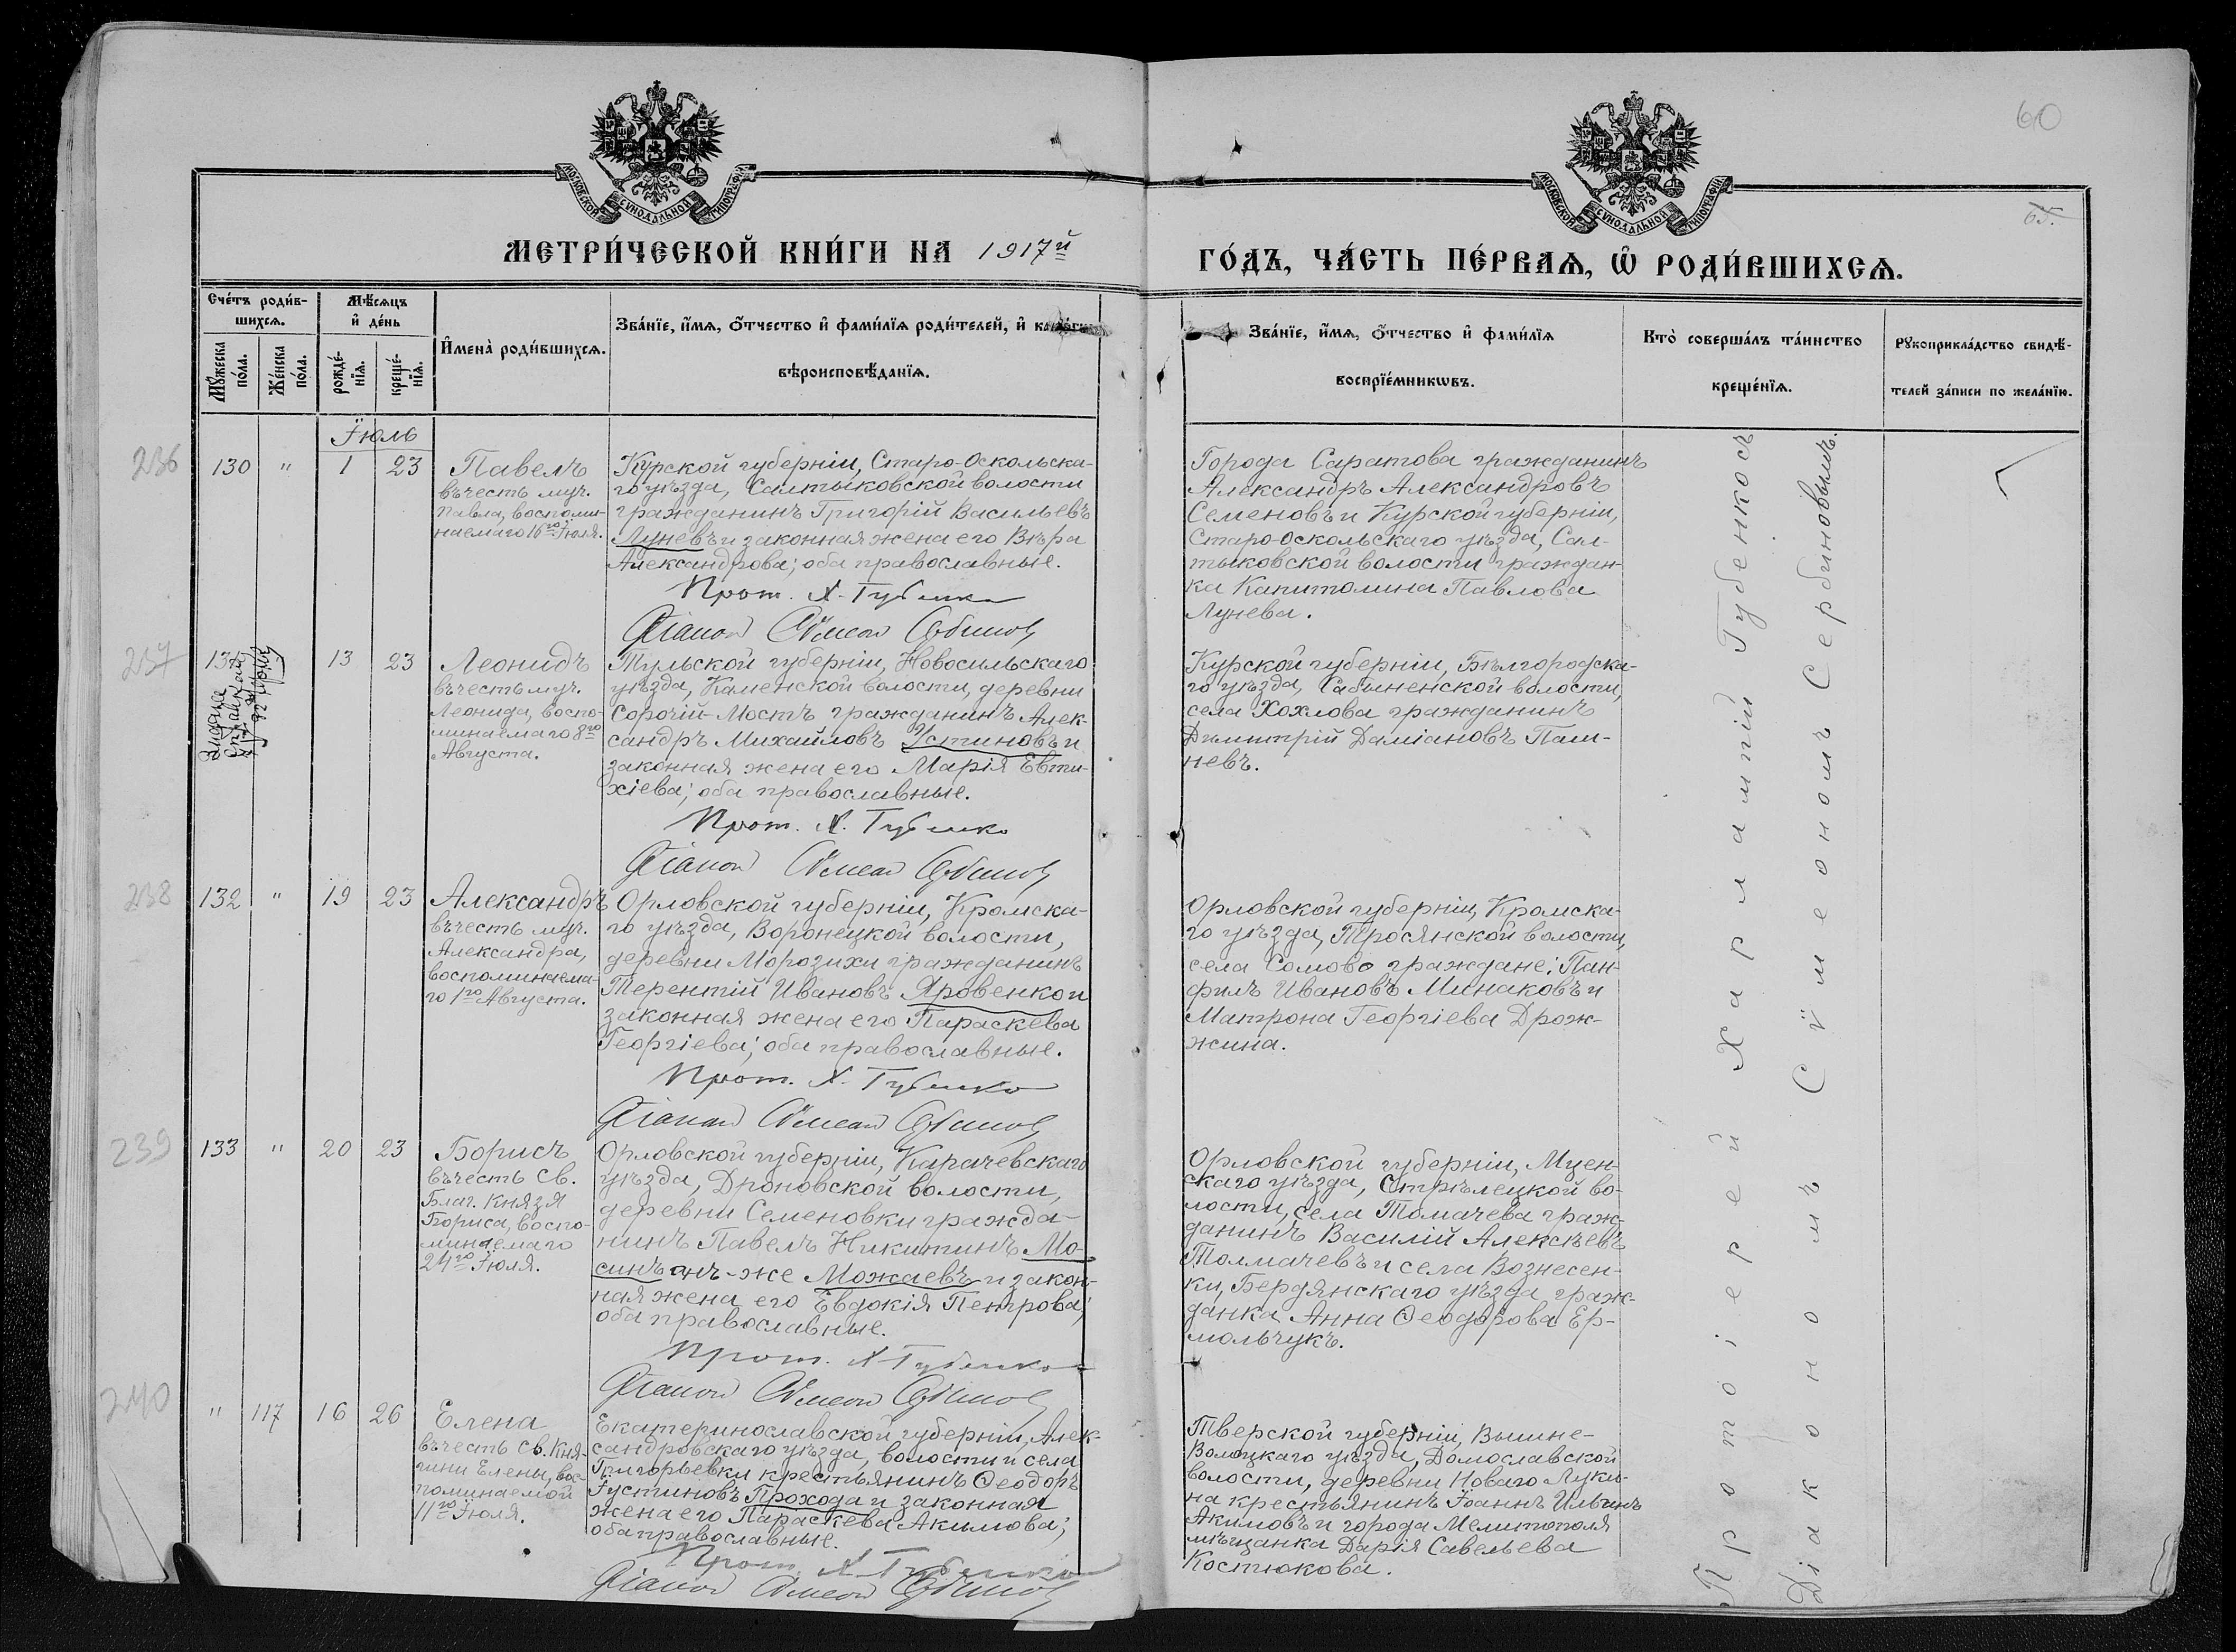 60
65.
МОСКОВСКОЙ СѴНОДАЛЬНОЙ ТИПОГРАФІИ
МОСКОВСКОЙ СѴНОДАЛЬНОЙ ТИПОГРАФІИ
МЕТРИ́ЧЕСКОЙ КНИ́ГИ НА 1917й
ГО́ДЪ, ЧА́СТЬ ПЕ́РВАѦ, Ѡ҆ РОДИ́ВШИХСѦ.
Сче́тъ роди́в-
шихсѧ.
Мꙋ́жеска
по́ла.
Же́нска
по́ла.
Мѣ́сѧцъ
и҆ де́нь
рожде́-
нїѧ.
креще́-
нїѧ.
И҆мена̀ роди́вшихсѧ.
Зва́нїе, и҆́мѧ, ѻ҆́тчество и҆ фами́лїѧ роди́телей, и҆
вѣроисповѣ́данїѧ.
Зва́нїе, и҆́мѧ, ѻ҆́тчество и҆ фами́лїѧ
воспрїе́мникѡвъ.
Кто̀ соверша́лъ та́инство
креще́нїѧ.
Рꙋкоприкла́дство свидѣ́-
телей за́писи по жела́нїю.
Іюль
236
130 " 1 23
Павелъ
въ честь муч.
Павла, воспоми-
наемаго 16го Іюля.
Курской губерніи, Старо-Оскольска-
го уѣзда, Салтыковской волости
гражданинъ Григорій Васильевъ
Луневъ и законная жена его Вѣра
Александрова; оба православные.
Прот. Х. Губенко
Діаконъ Сѵмеонъ Сербиновъ
Города Саратова гражданинъ
Александръ Александровъ
Семеновъ и Курской губерніи,
Старо-Оскольскаго уѣзда, Сал-
тыковской волости граждан-
ка Капитолина Павлова
Лунева.
237
131 13 23
Леонидъ
въ честь муч.
Леонида, воспо-
минаемаго 8го
Августа.
Тульской губерніи, Новосильскаго
уѣзда, Каменской волости, деревни
Сорочій-Мостъ гражданинъ Алек-
сандръ Михайловъ Устиновъ и
законная жена его Марія Евти-
хіева; оба православные.
Прот. Х. Губенко
Діаконъ Сѵмеонъ Сербиновъ
Курской губерніи, Бѣлгородска-
го уѣзда, Сабыненской волости,
села Хохлова гражданинъ
Димитрій Даміановъ Паш-
невъ.
238
132 " 19 23
Александръ
въ честь муч.
Александра,
воспоминаема-
го 1го Августа.
Орловской губерніи, Кромска-
го уѣзда, Воронецкой волости,
деревни Морозихи гражданинъ
Терентій Ивановъ Яровенко и
законная жена его Параскева
Георгіева; оба православные.
Прот. Х. Губенко
Діаконъ Сѵмеонъ Сербиновъ
Орловской губерніи, Кромска-
го уѣзда, Тросянской волости,
села Сомово граждане: Пан-
филъ Ивановъ Минаковъ и
Матрона Георгіева Дрож-
жина.
239
133 " 20 23
Борисъ
въ честь Св.
Благ. Князя
Бориса, воспо-
минаемаго
24го Іюля.
Орловской губерніи, Карачевскаго
уѣзда, Дроновской волости,
деревни Семеновки гражда-
нинъ Павелъ Никитинъ Мо-
синъ онъ-же Можаевъ и закон-
ная жена его Евдокія Петрова;
оба православные.
Прот. Х. Губенко
Діаконъ Сѵмеонъ Сербиновъ
Орловской губерніи, Мцен-
скаго уѣзда, Стрѣлецкой во-
лости, села Томачева граж-
данинъ Василій Алексѣевъ
Толмачевъ и села Вознесен-
ки, Бердянскаго уѣзда, граж-
данка Анна Ѳеодорова Ер-
мольчукъ.
240
" 117 16 26
Елена
въ честь Св. Кня-
гини Елены, вос-
поминаемой
11го Іюля.
Екатеринославской губерніи, Алек-
сандровскаго уѣзда, волости и села
Григорьевки крестьянинъ Ѳеодоръ
Іустиновъ Прохода и законная
жена его Параскева Акимова;
оба православные.
Прот. Х. Губенко
Діаконъ Сѵмеонъ Сербиновъ
Тверской губерніи, Вышне-
Волоцкаго уѣзда, Домославской
волости, деревни Новаго Луки-
на крестьянинъ Іоаннъ Ильинъ
Акимовъ и города Мелитополя
мѣщанка Дарія Савельева
Костюкова.
Протоіерей Харлампій Губенко съ
Діакономъ Сѵмеономъ Сербиновымъ.